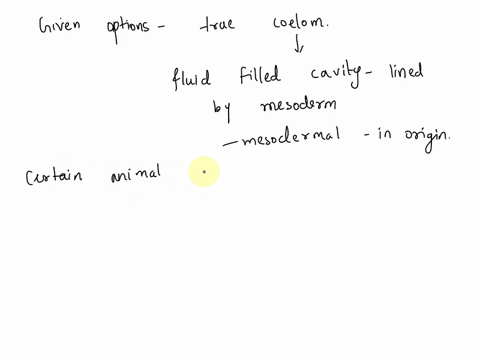 Given options - true coelom.
fluid filled cavity - lined
by mesoderm
- mesodermal - in origin.
Certain animal